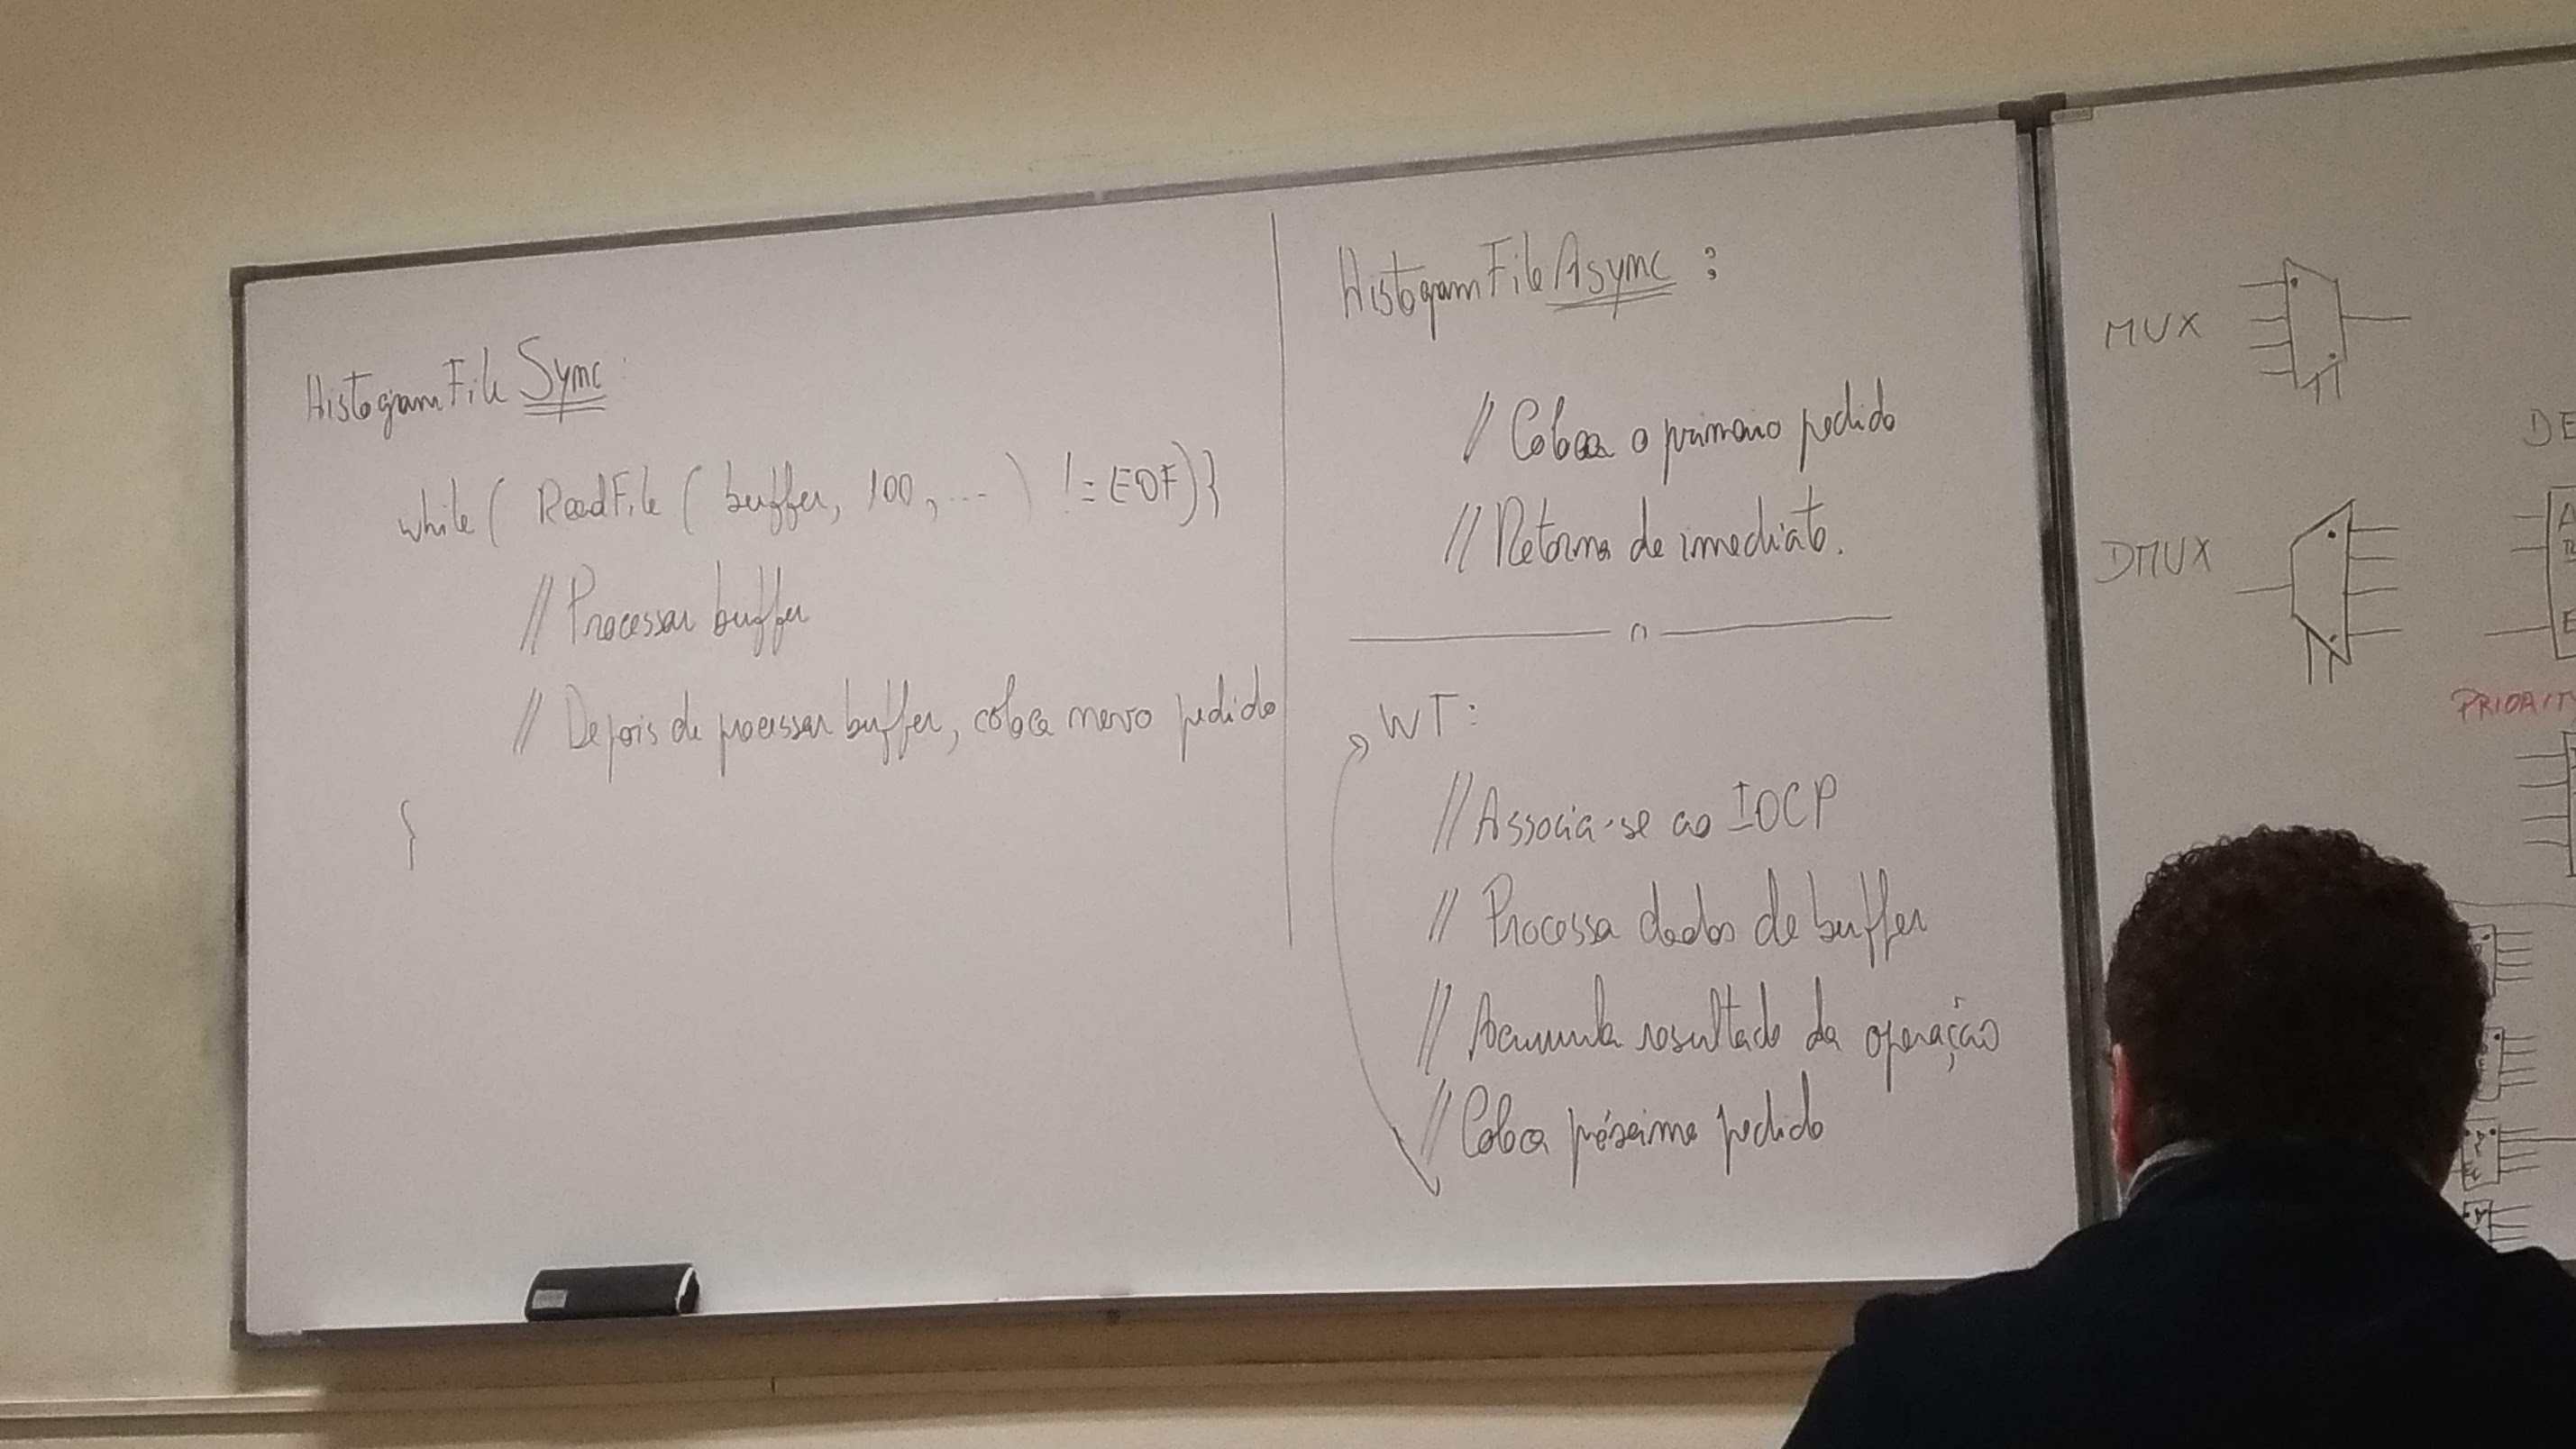 HistogramFile Sync:
while( ReadFile ( buffer, 100, ... ) != EOF) }
// Processar buffer
// Depois de processar buffer, coloca novo pedido
}
HistogramFile Async :
// Coloca o primeiro pedido
// Retorna de imediato.
WT:
// Associa-se ao IOCP
// Processa dados de buffer
// Acumula resultado da operação
// Coloca próximo pedido
MUX
DMUX
DE
A
E
PRIORIT